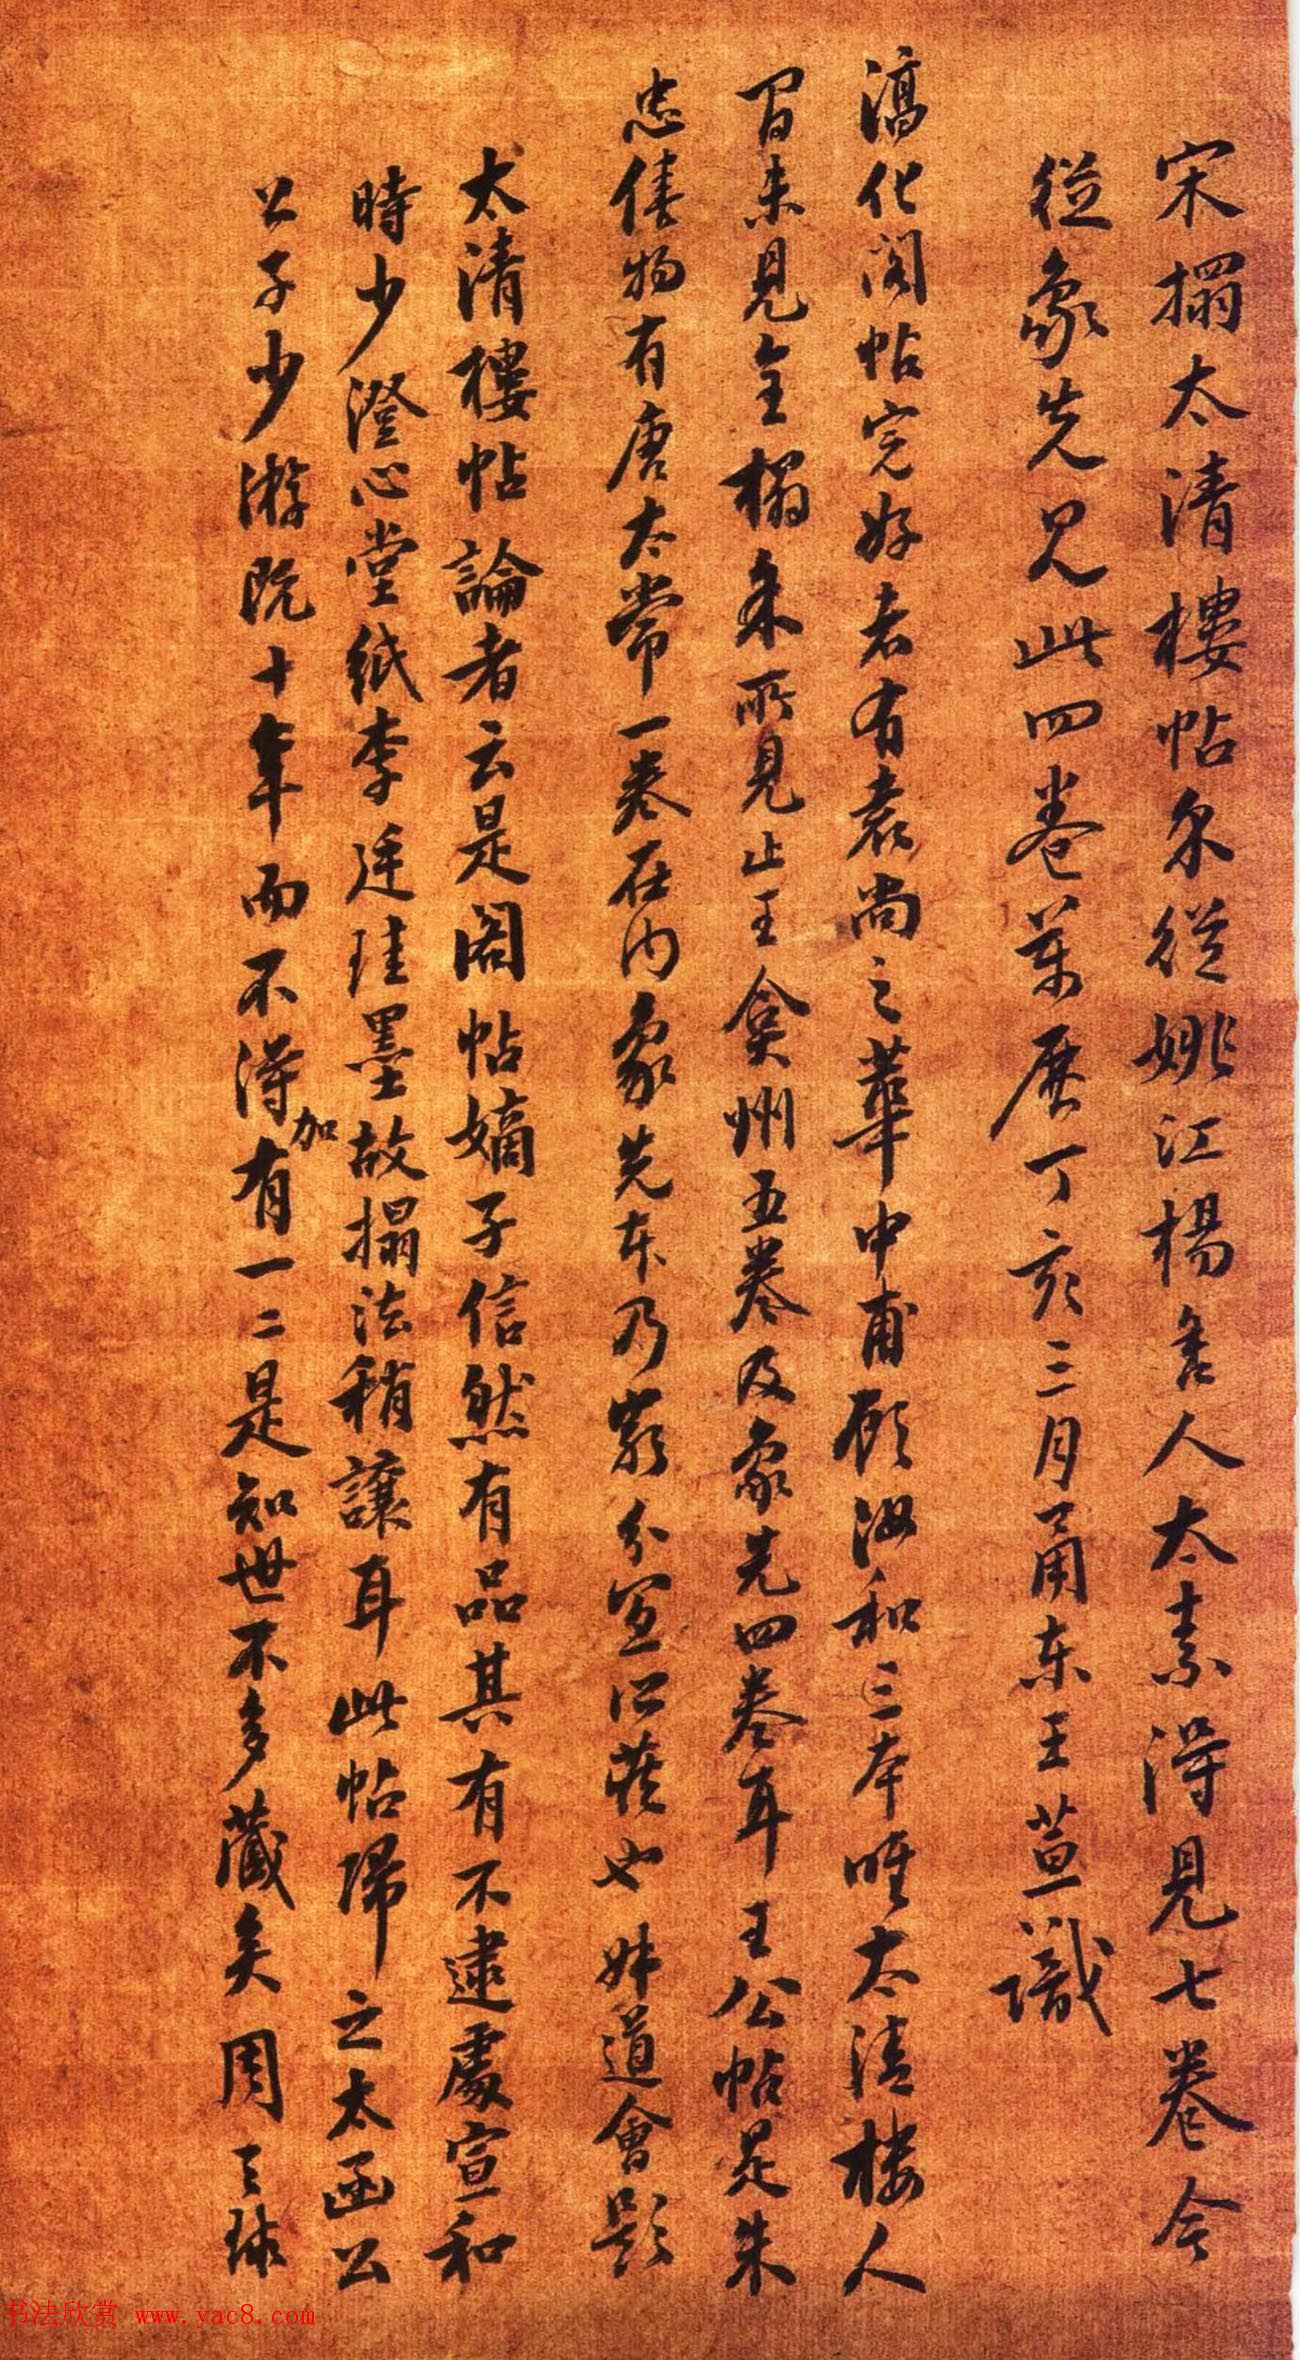 宋搨太清樓帖余從姚江楊舍人太素得見七卷今
從象先見此四卷萬曆丁亥三月甬東王萱識
淳化閣帖完好者有袁尚之華中甫顧汝和三本唯太清樓人
間未見全搨余所見止王弇州五卷及象先四卷耳王公帖是朱
忠僖物有唐太常一卷在內象先本乃嚴分宜所藏也姝道會題
太清樓帖論者云是閣帖嫡子信然有品其有不逮處宣和
時少澄心堂紙李廷珪墨故搨法稍讓耳此帖歸之太函公
公子少游既十年而不得加有一二是知世不多藏矣周天球
书法欣赏 www.yac8.com